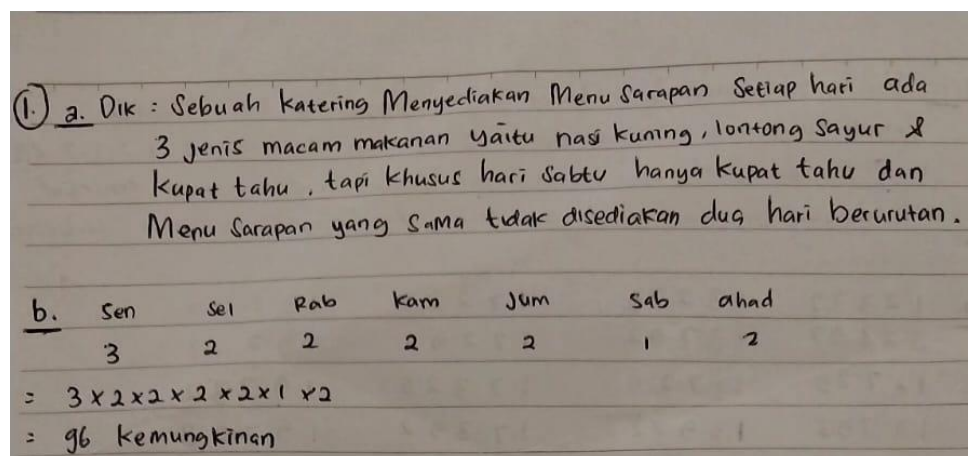 1. a. Dik : Sebuah katering Menyediakan Menu Sarapan Setiap hari ada
3 Jenis macam makanan yaitu nasi kuning, lontong Sayur &
Kupat tahu, tapi khusus hari Sabtu hanya Kupat tahu dan
Menu Sarapan yang Sama tidak disediakan dua hari berurutan.
b. Sen Sel Rab Kam Jum Sab ahad
3 2 2 2 2 1 2
= 3 x 2 x 2 x 2 x 2 x 1 x 2
= 96 Kemungkinan